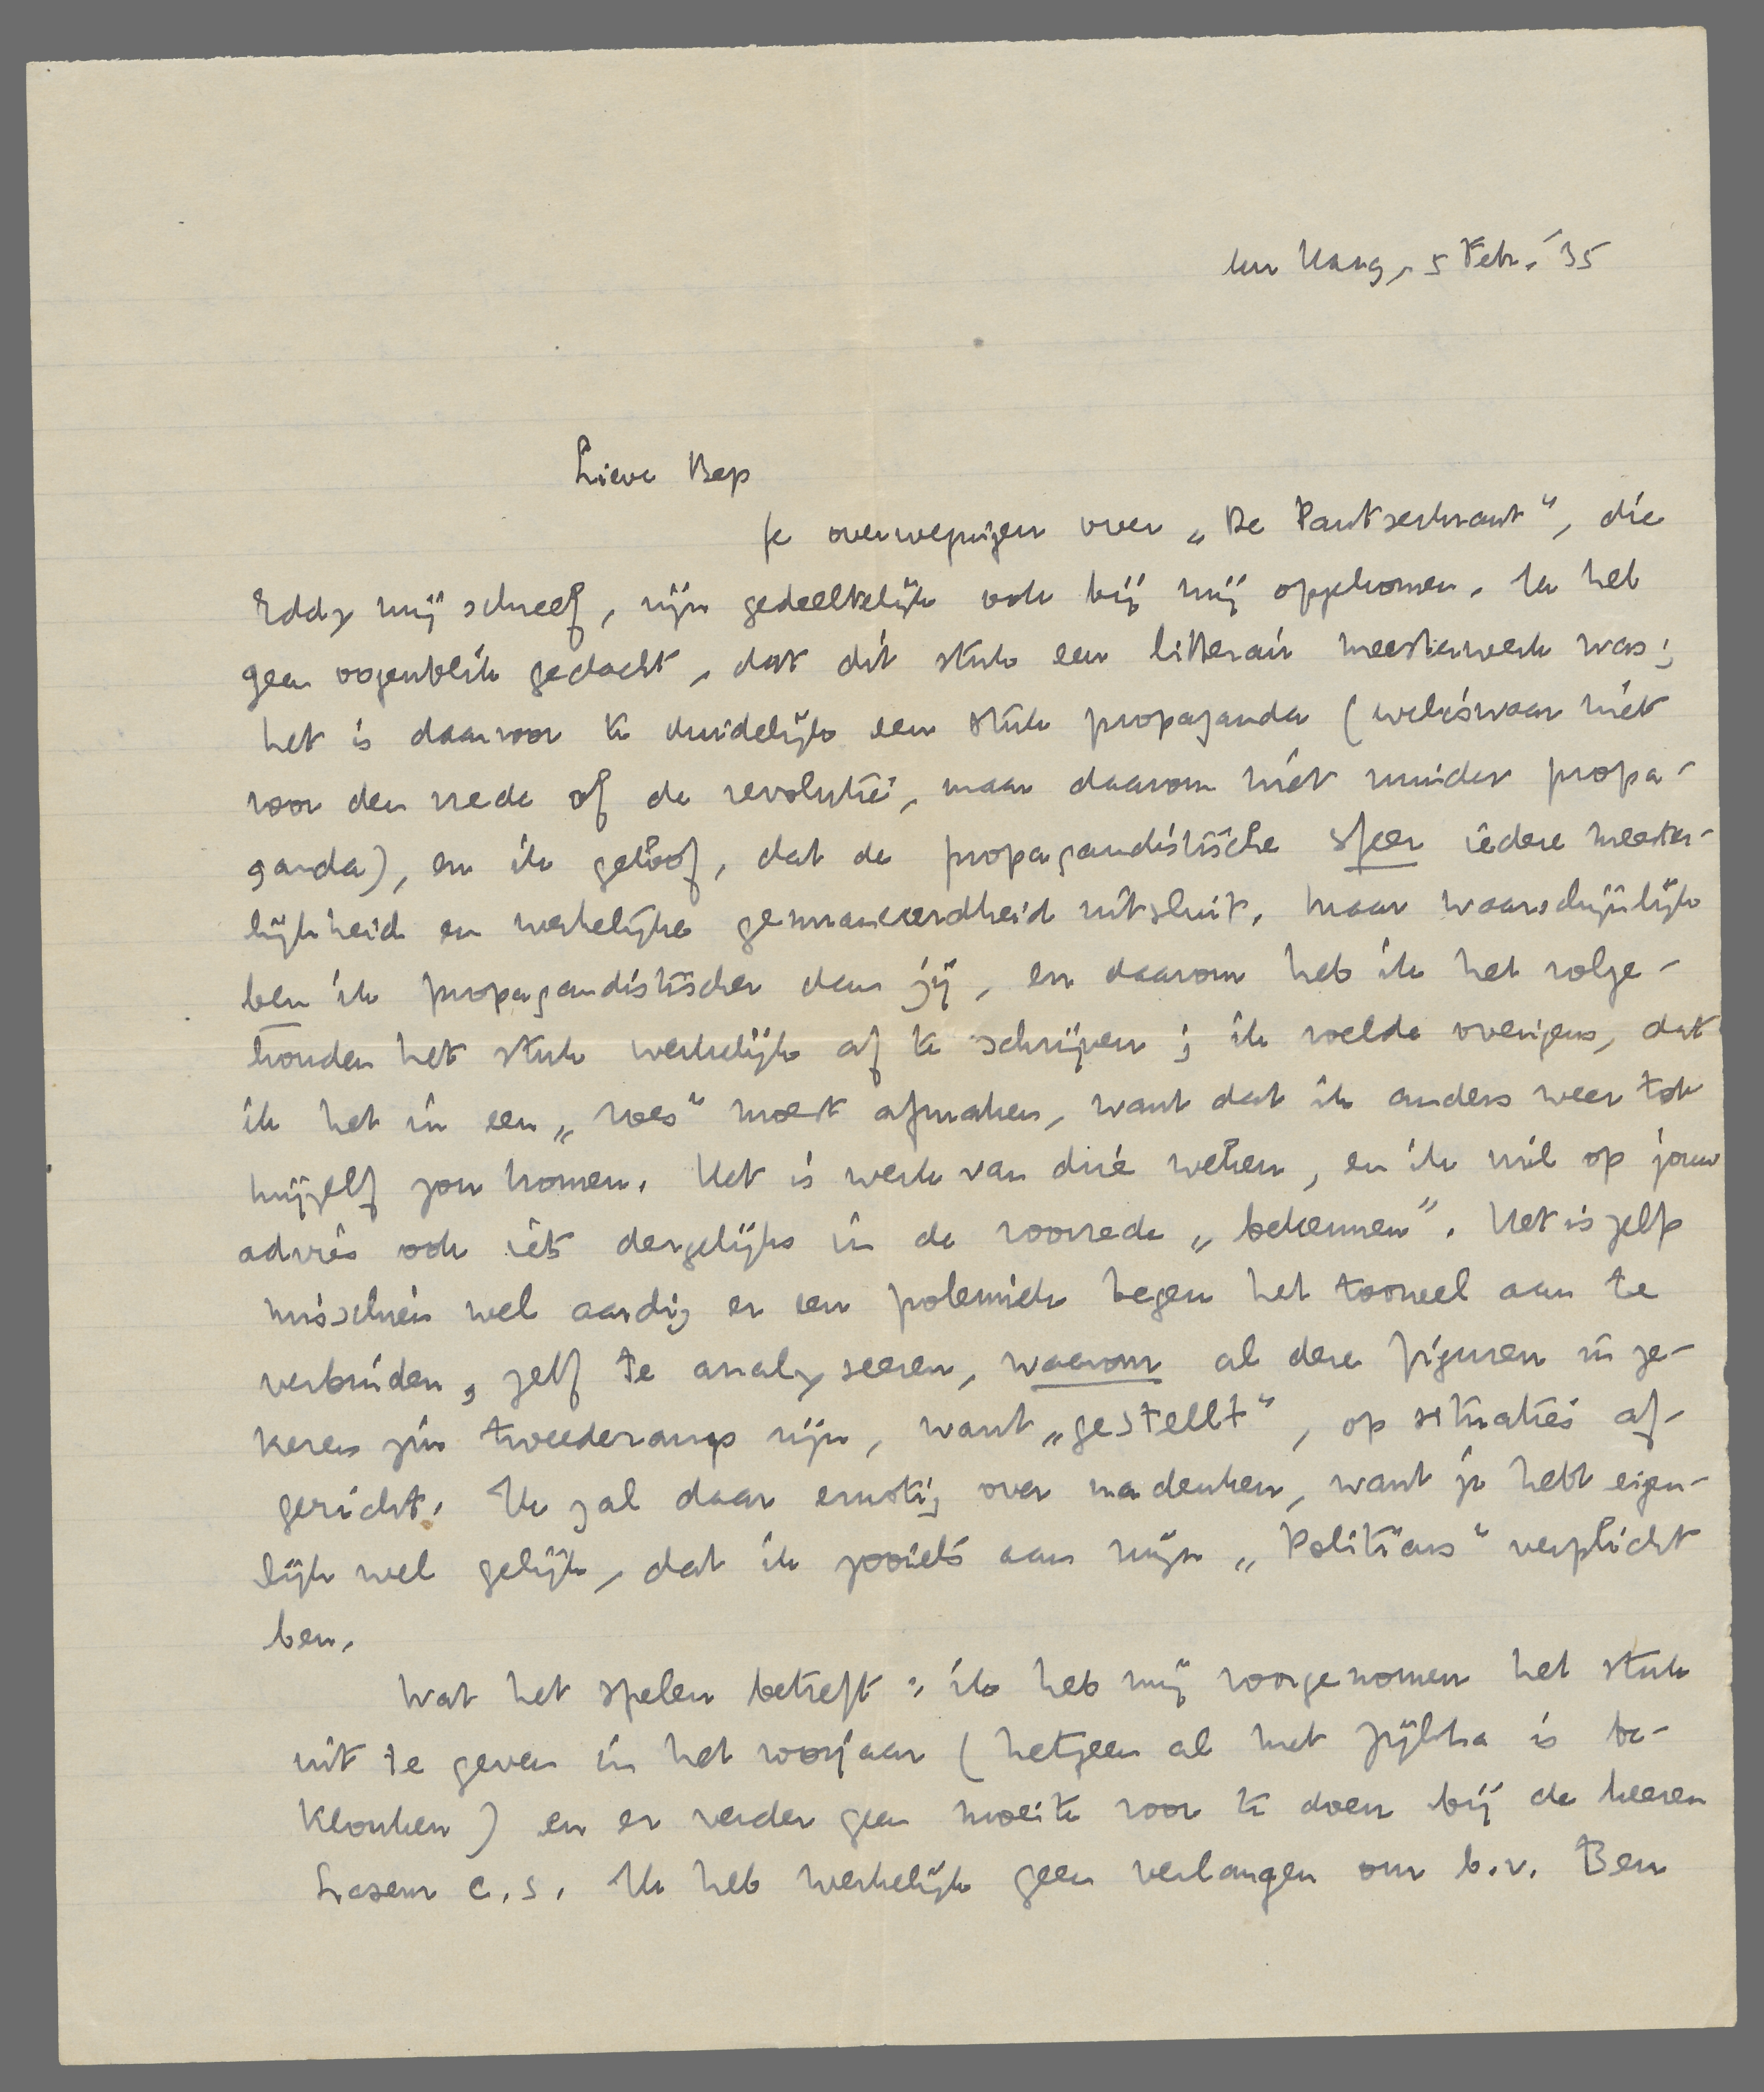 den Haag, 5 Febr. '35
Lieve Bep
Je overwegingen over „De Pantserkrant”, die
Eddy mij schreef, zijn gedeeltelijk ook bij mij opgekomen. Ik heb
geen oogenblik gedacht, dat dit stuk een litterair meesterwerk was;
het is daarvoor te duidelijk een stuk propaganda (weliswaar niet
voor den vrede of de revolutie, maar daarom niet minder propa-
ganda), en ik geloof, dat de propagandistische sfeer iedere meester-
lijkheid en werkelijke genuanceerdheid uitsluit. Maar waarschijnlijk
ben ik propagandistischer dan jij, en daarom heb ik het volge-
houden het stuk werkelijk af te schrijven; ik voelde overigens, dat
ik het in een „roes” moest afmaken, want dat ik anders weer tot
mijzelf zou komen. Het is werk van drie weken, en ik wil op jouw
advies ook iets dergelijks in de voorrede „bekennen”. Het is zelfs
misschien wel aardig er een polemiek tegen het tooneel aan te
verbinden, zelf te analyseeren, waarom al deze figuren in ze-
keren zin tweederangs zijn, want „gestellt”, op situaties af-
gericht. Ik zal daar ernstig over nadenken, want je hebt eigen-
lijk wel gelijk, dat ik zooiets aan mijn „Politicus” verplicht
ben.
Wat het spelen betreft: ik heb mij voorgenomen het stuk
uit te geven in het voorjaar (hetgeen al met Zijlstra is be-
klonken) en er verder geen moeite voor te doen bij de heeren
Laseur c.s. Ik heb werkelijk geen verlangen om b.v. Ben